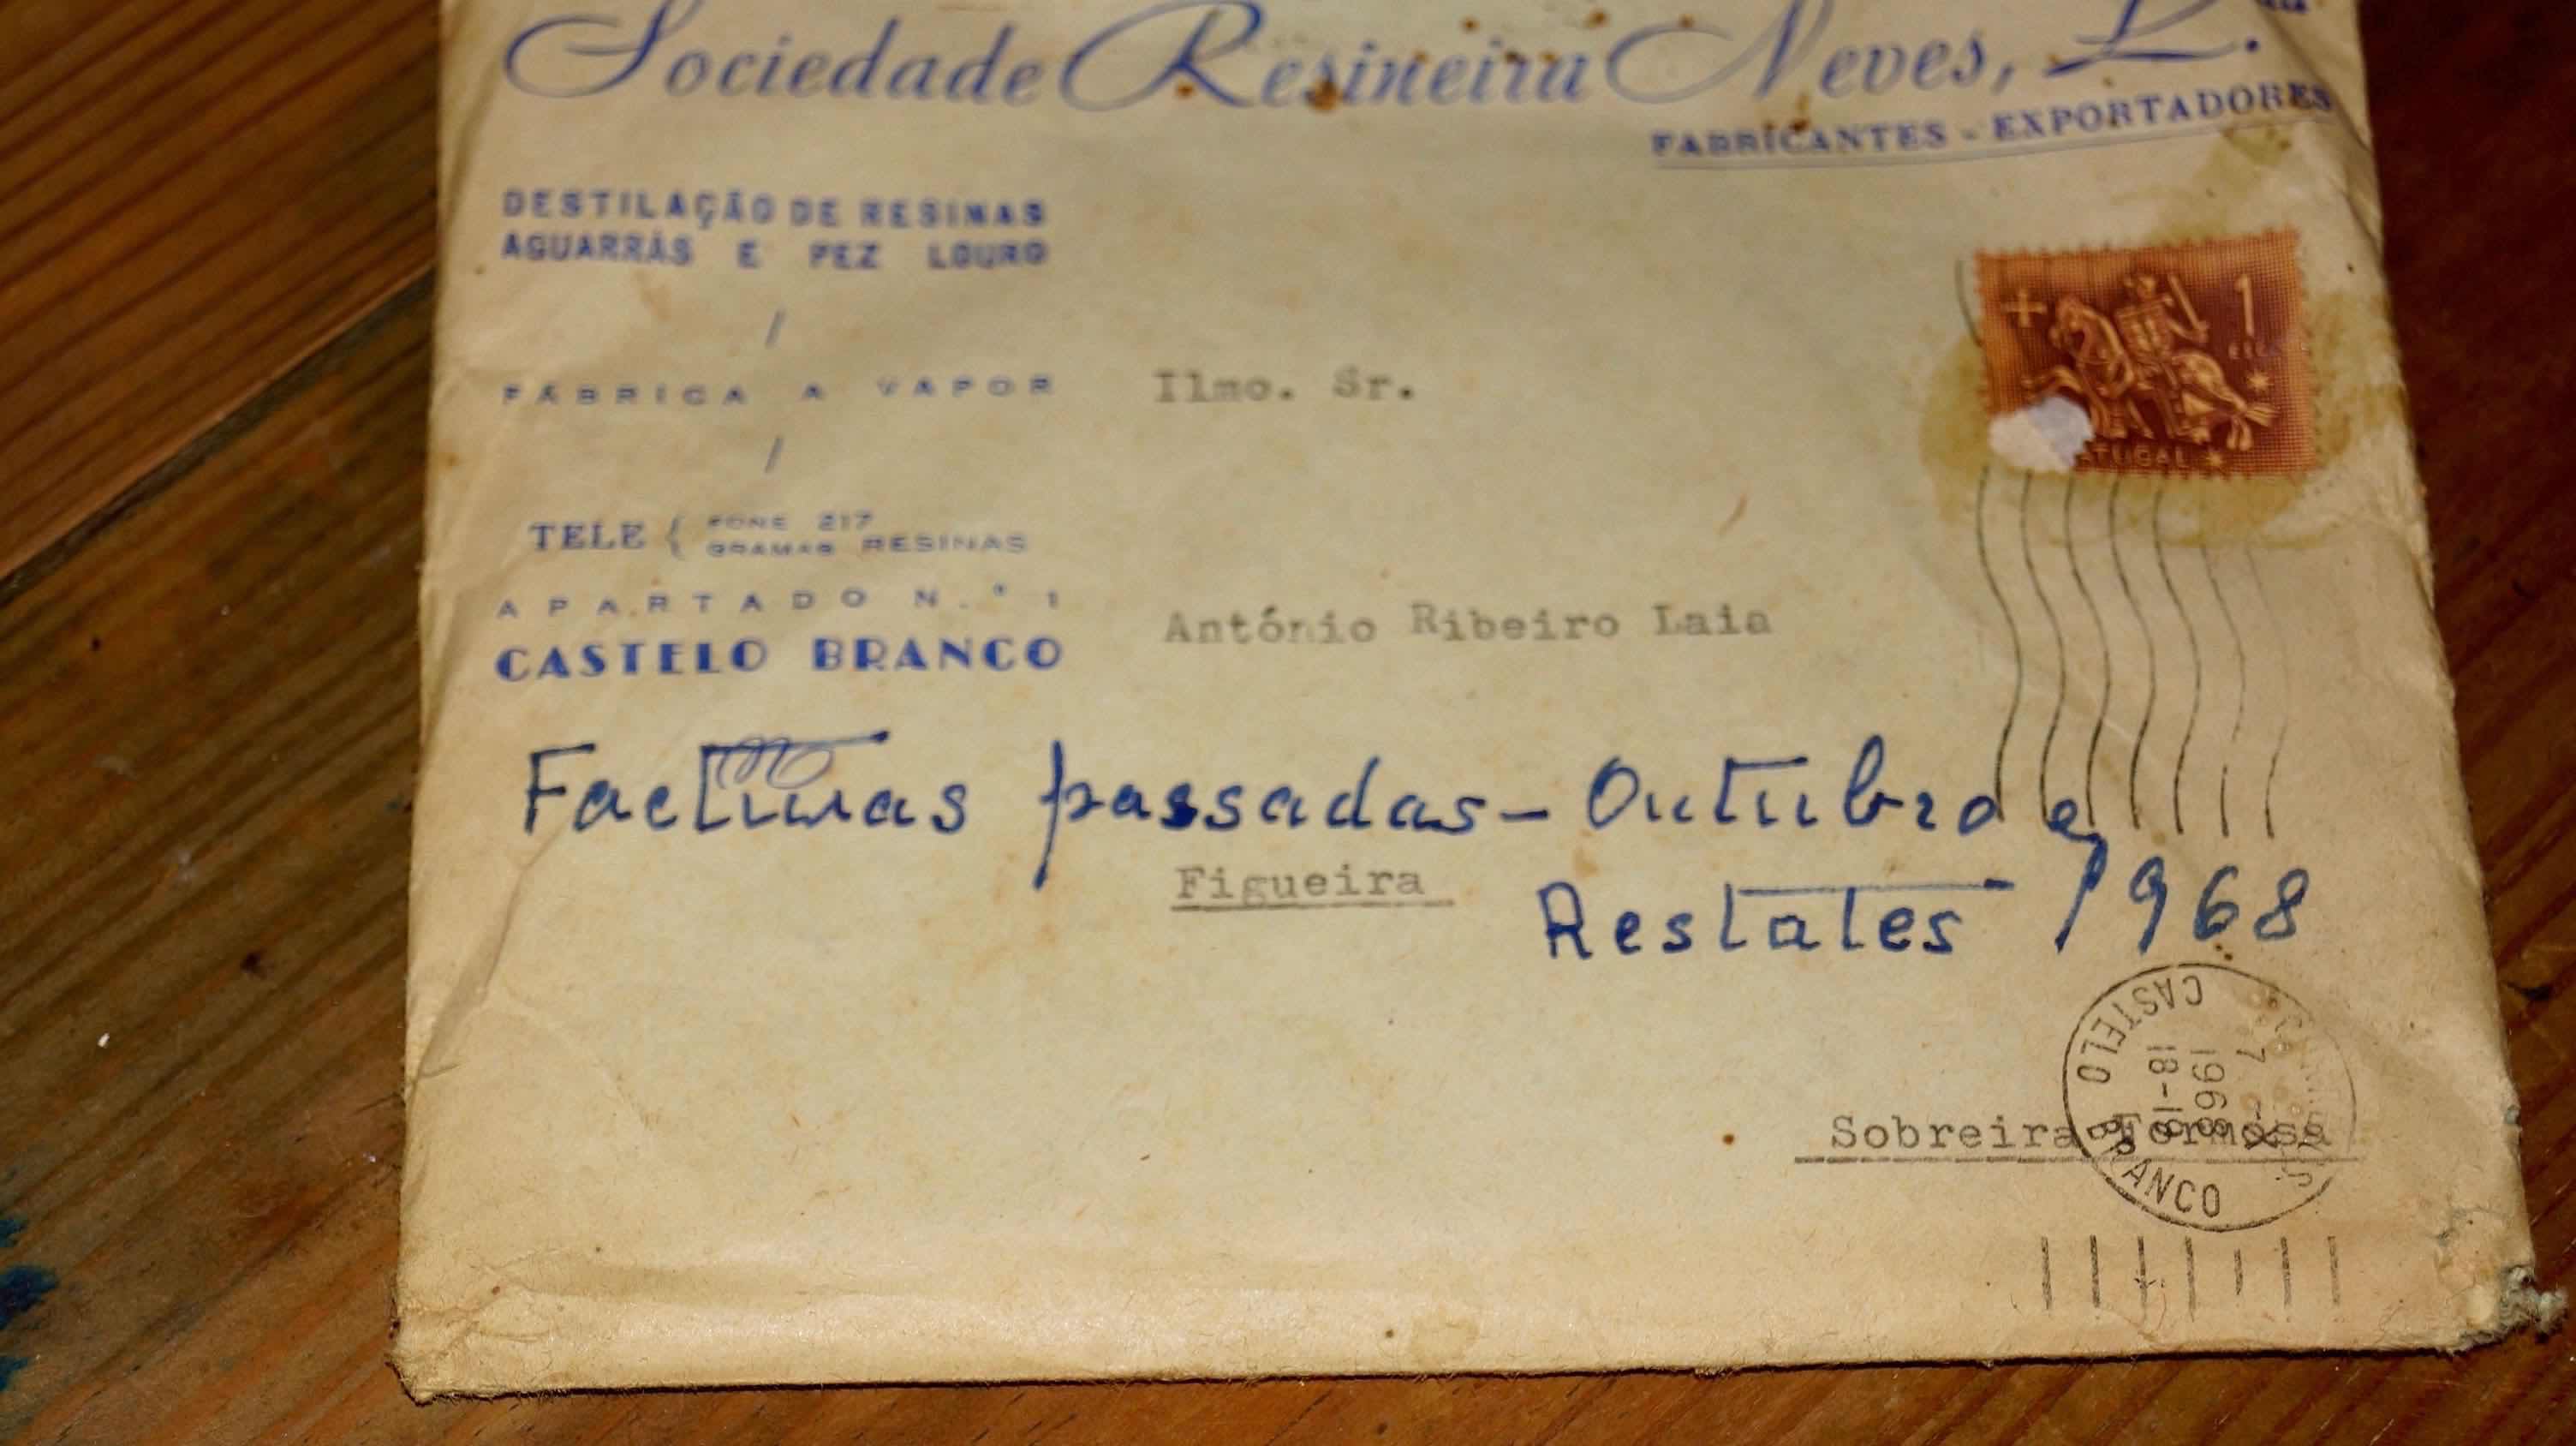 Sociedade Resineira Neves, L.
FABRICANTES - EXPORTADORES
DESTILAÇÃO DE RESINAS
AGUARRÁS E PEZ LOURO
FÁBRICA A VAPOR
TELE { FONE 217
GRAMAS RESINAS
APARTADO N.º 1
CASTELO BRANCO
1
PORTUGAL
Ilmo. Sr.
António Ribeiro Laia
Facturas passadas - Outubro e
Figueira
Restates 1968
Sobreira Formosa
CASTELO BRANCO
1968
18-19